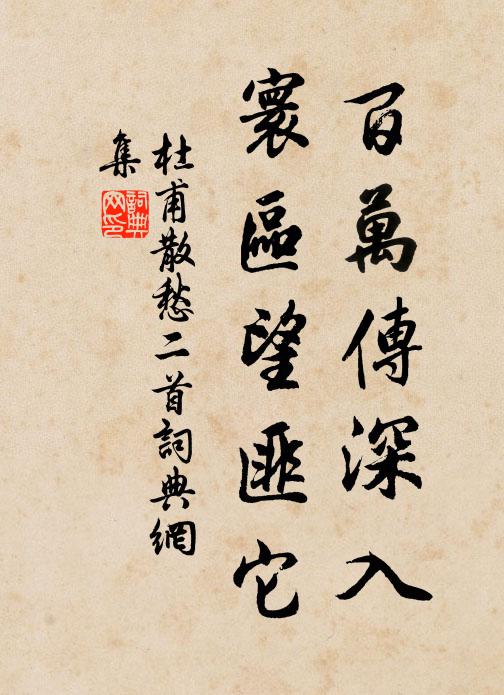 百萬傳深入
寰區望匪它
杜甫散愁二首詞典網
集
詞典
网印